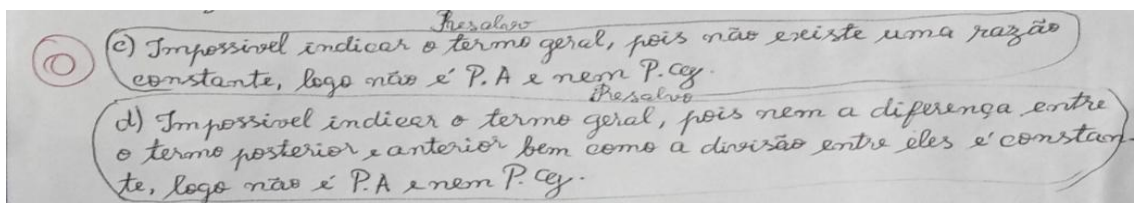 Resalvo
0 c) Impossivel indicar o termo geral, pois não existe uma razão
constante, logo não é P.A e nem P.G.
Resalvo
d) Impossivel indicar o termo geral, pois nem a diferença entre
o termo posterior e anterior bem como a divisão entre eles é constan-
te, logo não é P.A e nem P.G.